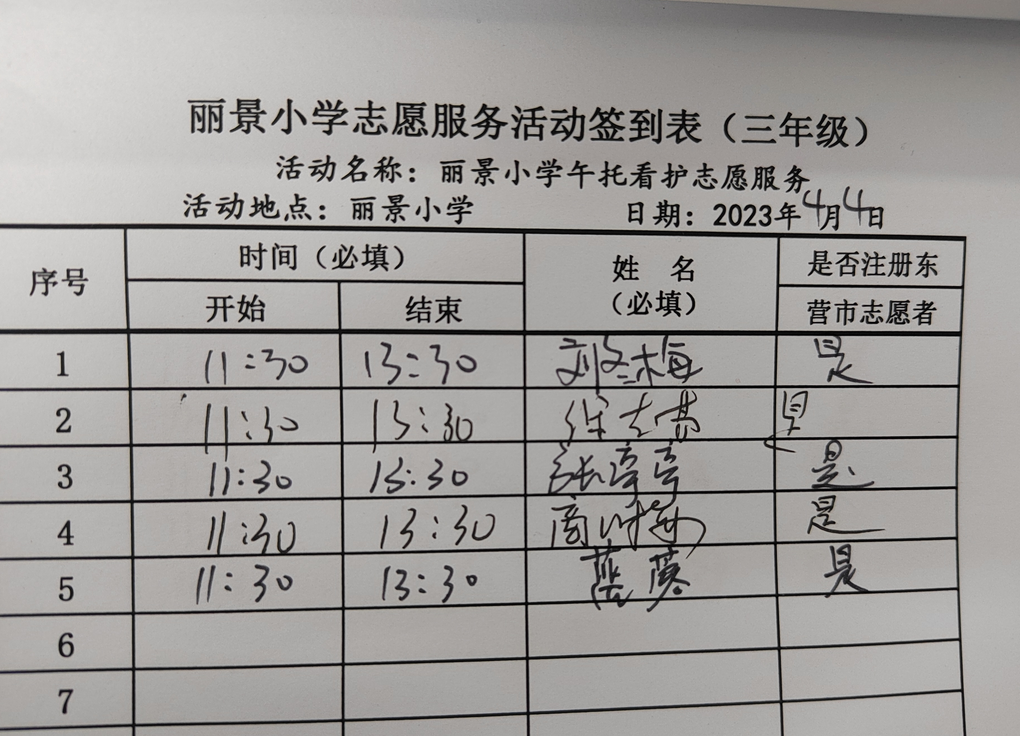 丽景小学志愿服务活动签到表（三年级）
活动名称：丽景小学午托看护志愿服务
活动地点：丽景小学 日期：2023年4月4日
序号 时间（必填） 姓名（必填） 是否注册东营市志愿者
开始 结束
1 11:30 13:30 刘冬梅 是
2 11:30 13:30 徐 是
3 11:30 13:30 张 是
4 11:30 13:30 商 是
5 11:30 13:30 是
6
7